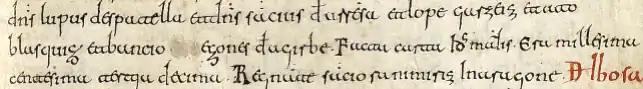 dn̄s lupus despatella et dn̄s sācius d'uŕŕesa et lope garzeiz et acato
blasquiz et bancio ezones d'agirbe. Facta carta Id' madīs. Era millesima
centesima atreſqa decima. Regnante sācio rammiriz In aragone. D lbosa